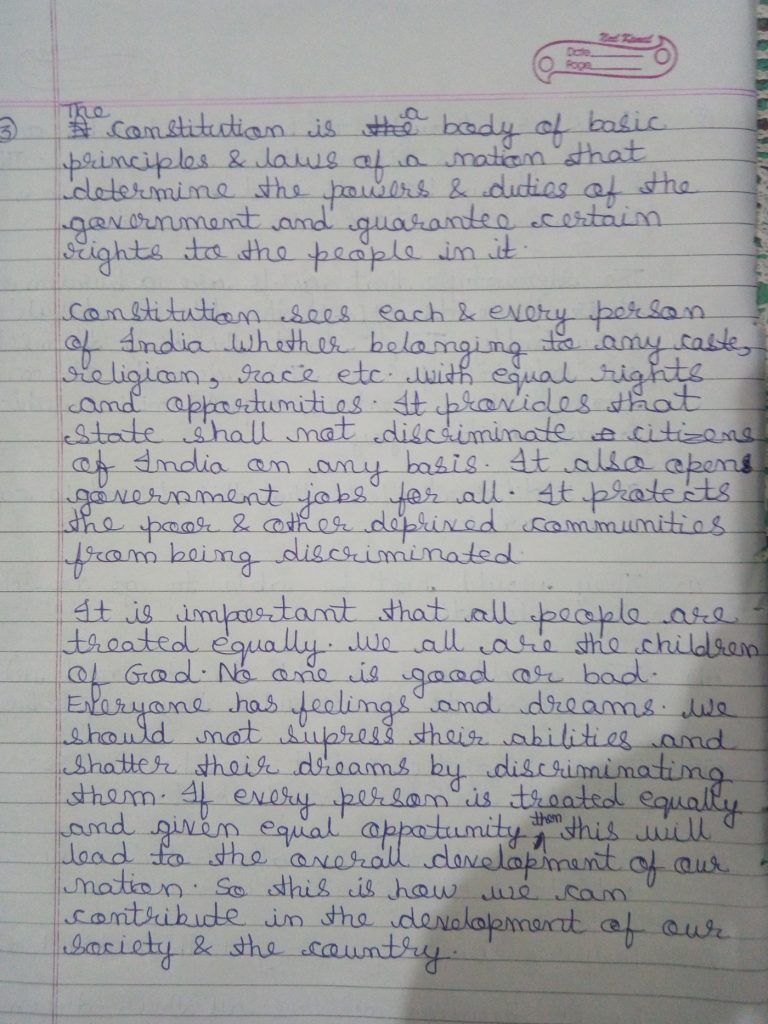 Date
Page
3
The constitution is a body of basic
principles & laws of a nation that
determine the powers & duties of the
government and guarantee certain
rights to the people in it.
Constitution sees each & every person
of India whether belonging to any caste,
religion, race etc. with equal rights
and opportunities. It provides that
state shall not discriminate citizens
of India on any basis. It also opens
government jobs for all. It protects
the poor & other deprived communities
from being discriminated.
It is important that all people are
treated equally. We all are the children
of God. No one is good or bad.
Everyone has feelings and dreams. We
should not supress their abilities and
shatter their dreams by discriminating
them. If every person is treated equally
and given equal oppotunity, then this will
lead to the overall development of our
nation. So this is how we can
contribute in the development of our
society & the country.